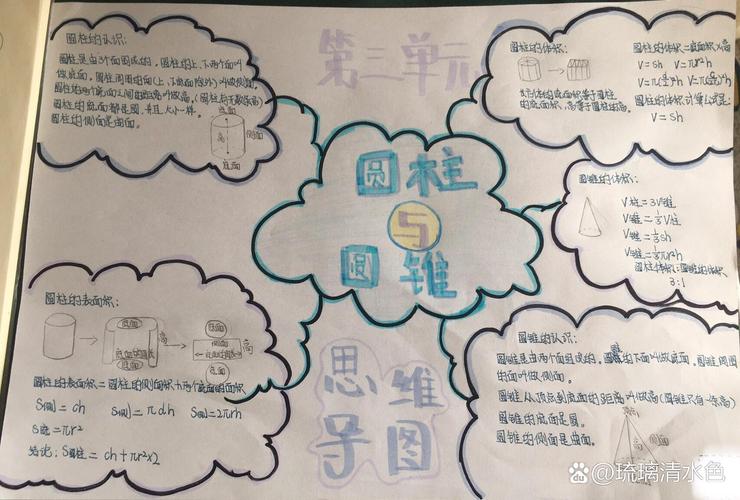 第三单元
圆柱
与
圆锥
思维
导图
圆柱的认识:
圆柱是由3个面围成的，圆柱的上、下两个面叫
做底面，圆柱周围的面(上、下底面除外)叫做侧面，
圆柱的两个底面之间的距离叫做高，(圆柱有无数条高)
圆柱的底面都是圆，并且大小一样。
圆柱的侧面是曲面。
底面
高
侧面
底面
圆柱的体积:
长方体的底面积等于圆柱
的底面积，高等于圆柱的高。
圆柱的体积=底面积×高
V=Sh V=πr²h
圆柱的体积计算公式是:
V=Sh
圆锥的体积:
V柱=3V锥
V锥=⅓V柱
V锥=⅓Sh
V锥=⅓πr²h
圆柱体积:圆锥的体积
3:1
圆柱的表面积:
底面
高
底面
底面
侧面
高
底面
圆柱的表面积=圆柱的侧面积+两个底面的面积
S侧=ch S侧=πdh S侧=2πrh
S底=πr²
S圆柱=ch+πr²×2
圆锥的认识:
圆锥是由两个面组成的，圆锥的下面叫做底面，圆锥周围
的面叫做侧面。
圆锥从顶点到底面的距离叫做高(圆锥只有一条高)
圆锥的底面是圆。
圆锥的侧面是曲面。
高
侧面
@琉璃清水色